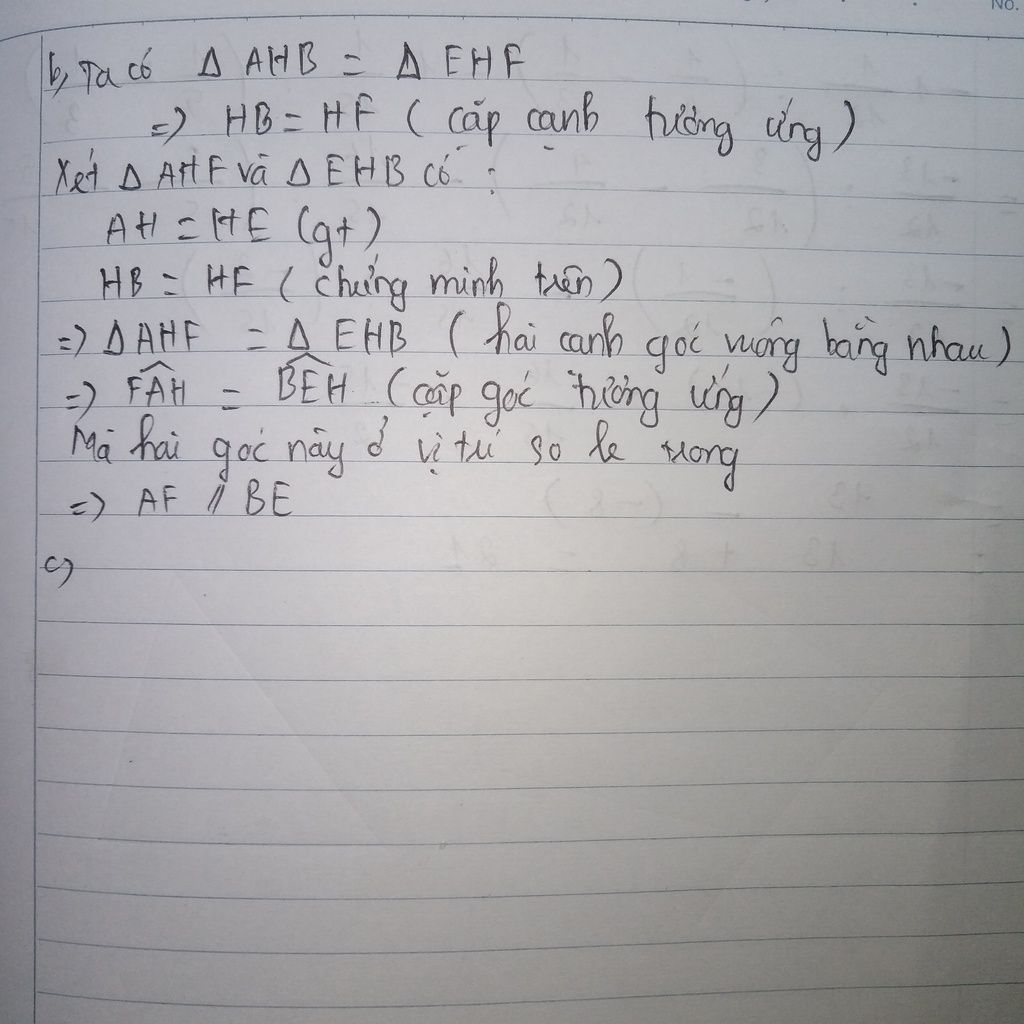 No.
b, Ta có Δ AHB = Δ EHF
=> HB = HF ( cặp cạnh tương ứng )
Xét Δ AHF và Δ EHB có :
AH = HE (gt)
HB = HF ( chứng minh trên )
=> Δ AHF = Δ EHB ( hai cạnh góc vuông bằng nhau )
=> \widehat{FAH} = \widehat{BEH} ( cặp góc tương ứng )
Mà hai góc này ở vị trí so le trong
=> AF // BE
c)